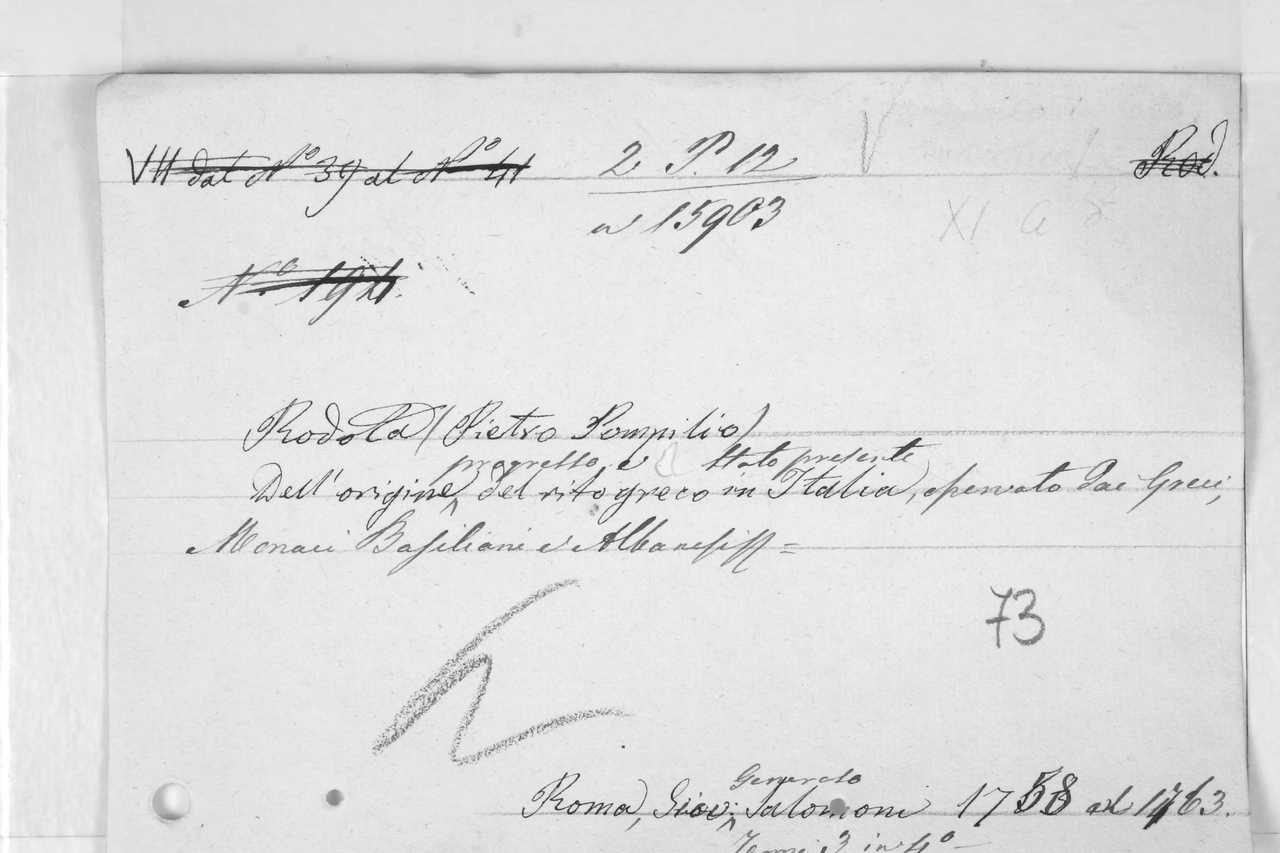 VII dal Nº 39 al Nº 41 2 P. 12 V Rod.
a 15903 XI a
Nº 194.
Rodotà (Pietro Pompilio)
progresso, e stato presente
Dell'origine, del rito greco in Italia, osservato dai Greci,
Monaci Basiliani e Albanesi =
73
h
Generoso
Roma, Giov: Salomoni 1758 al 1763.
Tomi 3 in 4º